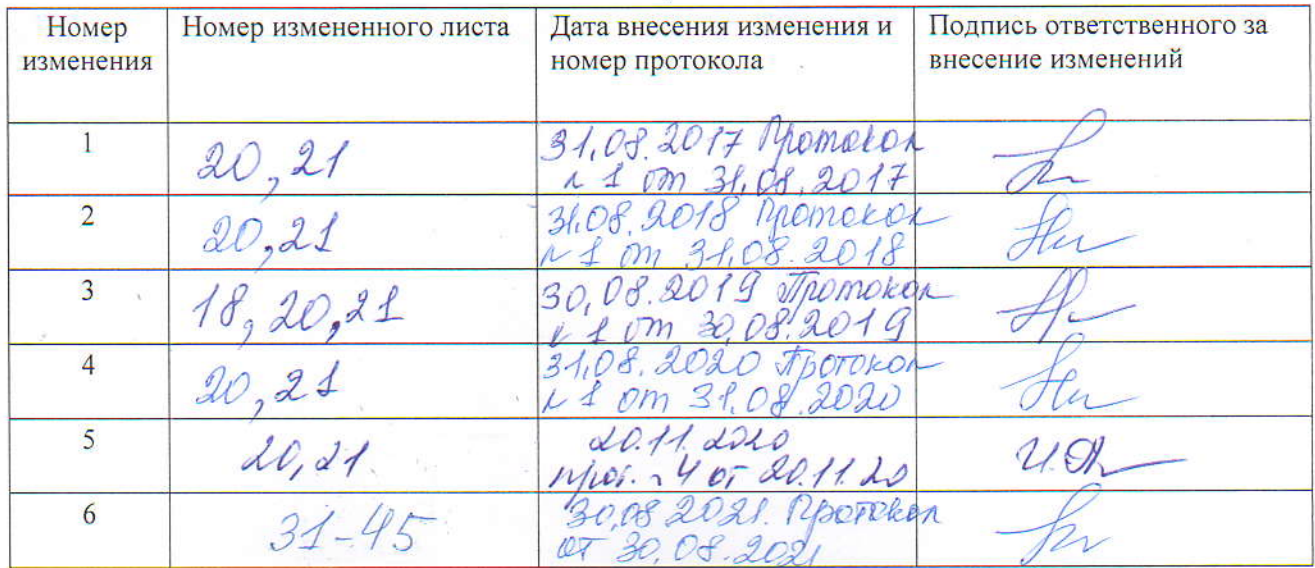 Номер изменения
Номер измененного листа
Дата внесения изменения и номер протокола
Подпись ответственного за внесение изменений
1
20, 21
31.08.2017 Протокол
№ 1 от 31.08.2017
2
20, 21
31.08.2018 Протокол
№ 1 от 31.08.2018
3
18, 20, 21
30.08.2019 Протокол
№ 1 от 30.08.2019
4
20, 21
31.08.2020 Протокол
№ 1 от 31.08.2020
5
20, 21
20.11.2020
прот. №4 от 20.11.20
6
31-45
30.08 2021. Протокол
от 30.08.2021